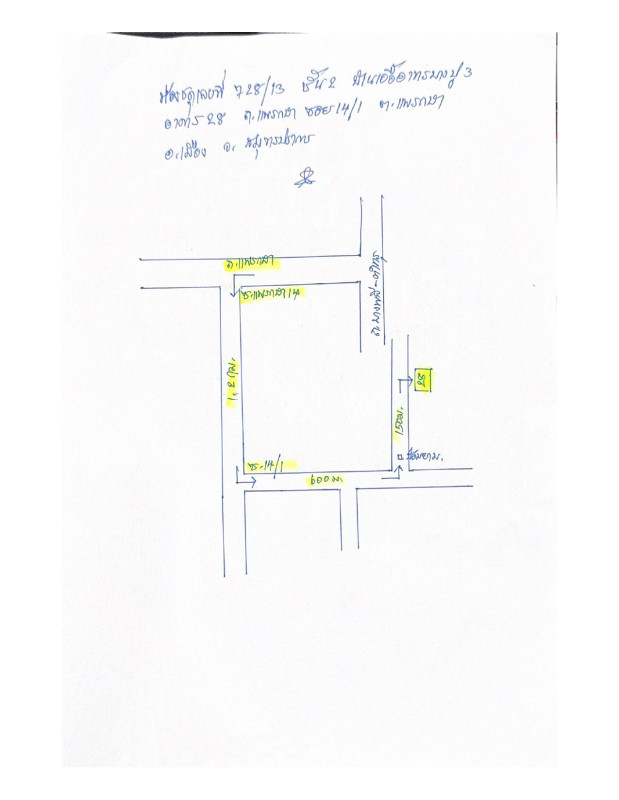 ห้องชุดเลขที่ 728/13 ชั้น 2 บ้านเอื้ออาทรบางปู 3
อาคาร 28 ถ.แพรกษา ซอย 14/1 ต.แพรกษา
อ.เมือง จ. สมุทรปราการ
ถ.แพรกษา
ซ.แพรกษา 14
ถ.บางพลี-ตำหรุ
1.2 กม.
28
150ม.
ซ.14/1
ป้อมยาม.
600 ม.